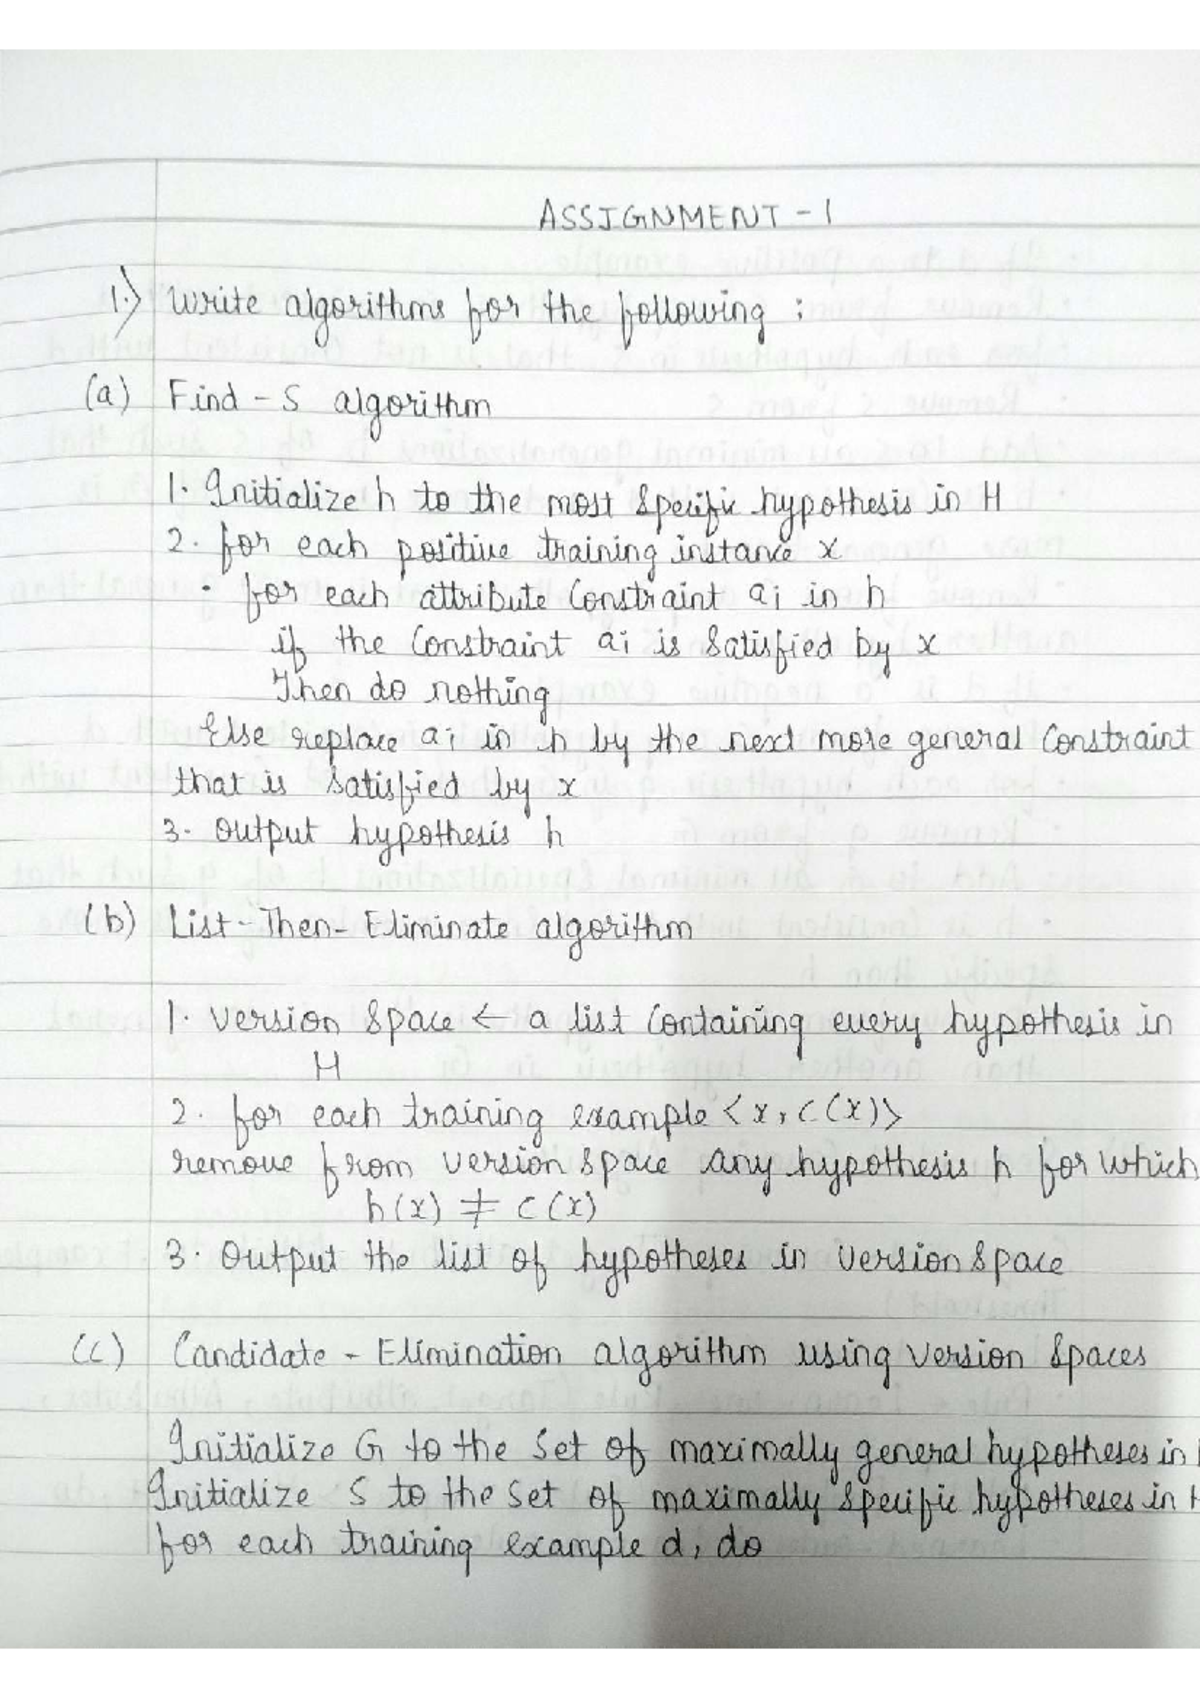 ASSIGNMENT - 1
1.) Write algorithms for the following :
(a) Find - S algorithm
1. Initialize h to the most specific hypothesis in H
2. for each positive training instance x
• for each attribute constraint ai in h
if the constraint ai is satisfied by x
Then do nothing
Else replace ai in h by the next more general constraint
that is satisfied by x
3. Output hypothesis h
(b) List - Then - Eliminate algorithm
1. Version Space ← a list containing every hypothesis in
H
2. for each training example <x, c(x)>
remove from version space any hypothesis h for which
h(x) ≠ c(x)
3. Output the list of hypotheses in version space
(c) Candidate - Elimination algorithm using version spaces
Initialize G to the set of maximally general hypotheses in
Initialize S to the set of maximally specific hypotheses in H
for each training example d, do